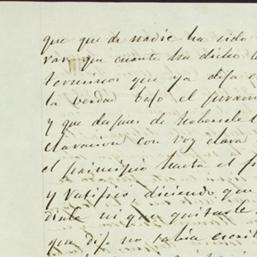 que que de nadie ha sido
van que cuanto ha dicho
terminos que ya dijo
la verdad bajo el juram
y que despues de
claracion con voz clara
el principio hasta el f
y ratifico, diciendo que
ni que quitarle
que dijo no sabia escrib